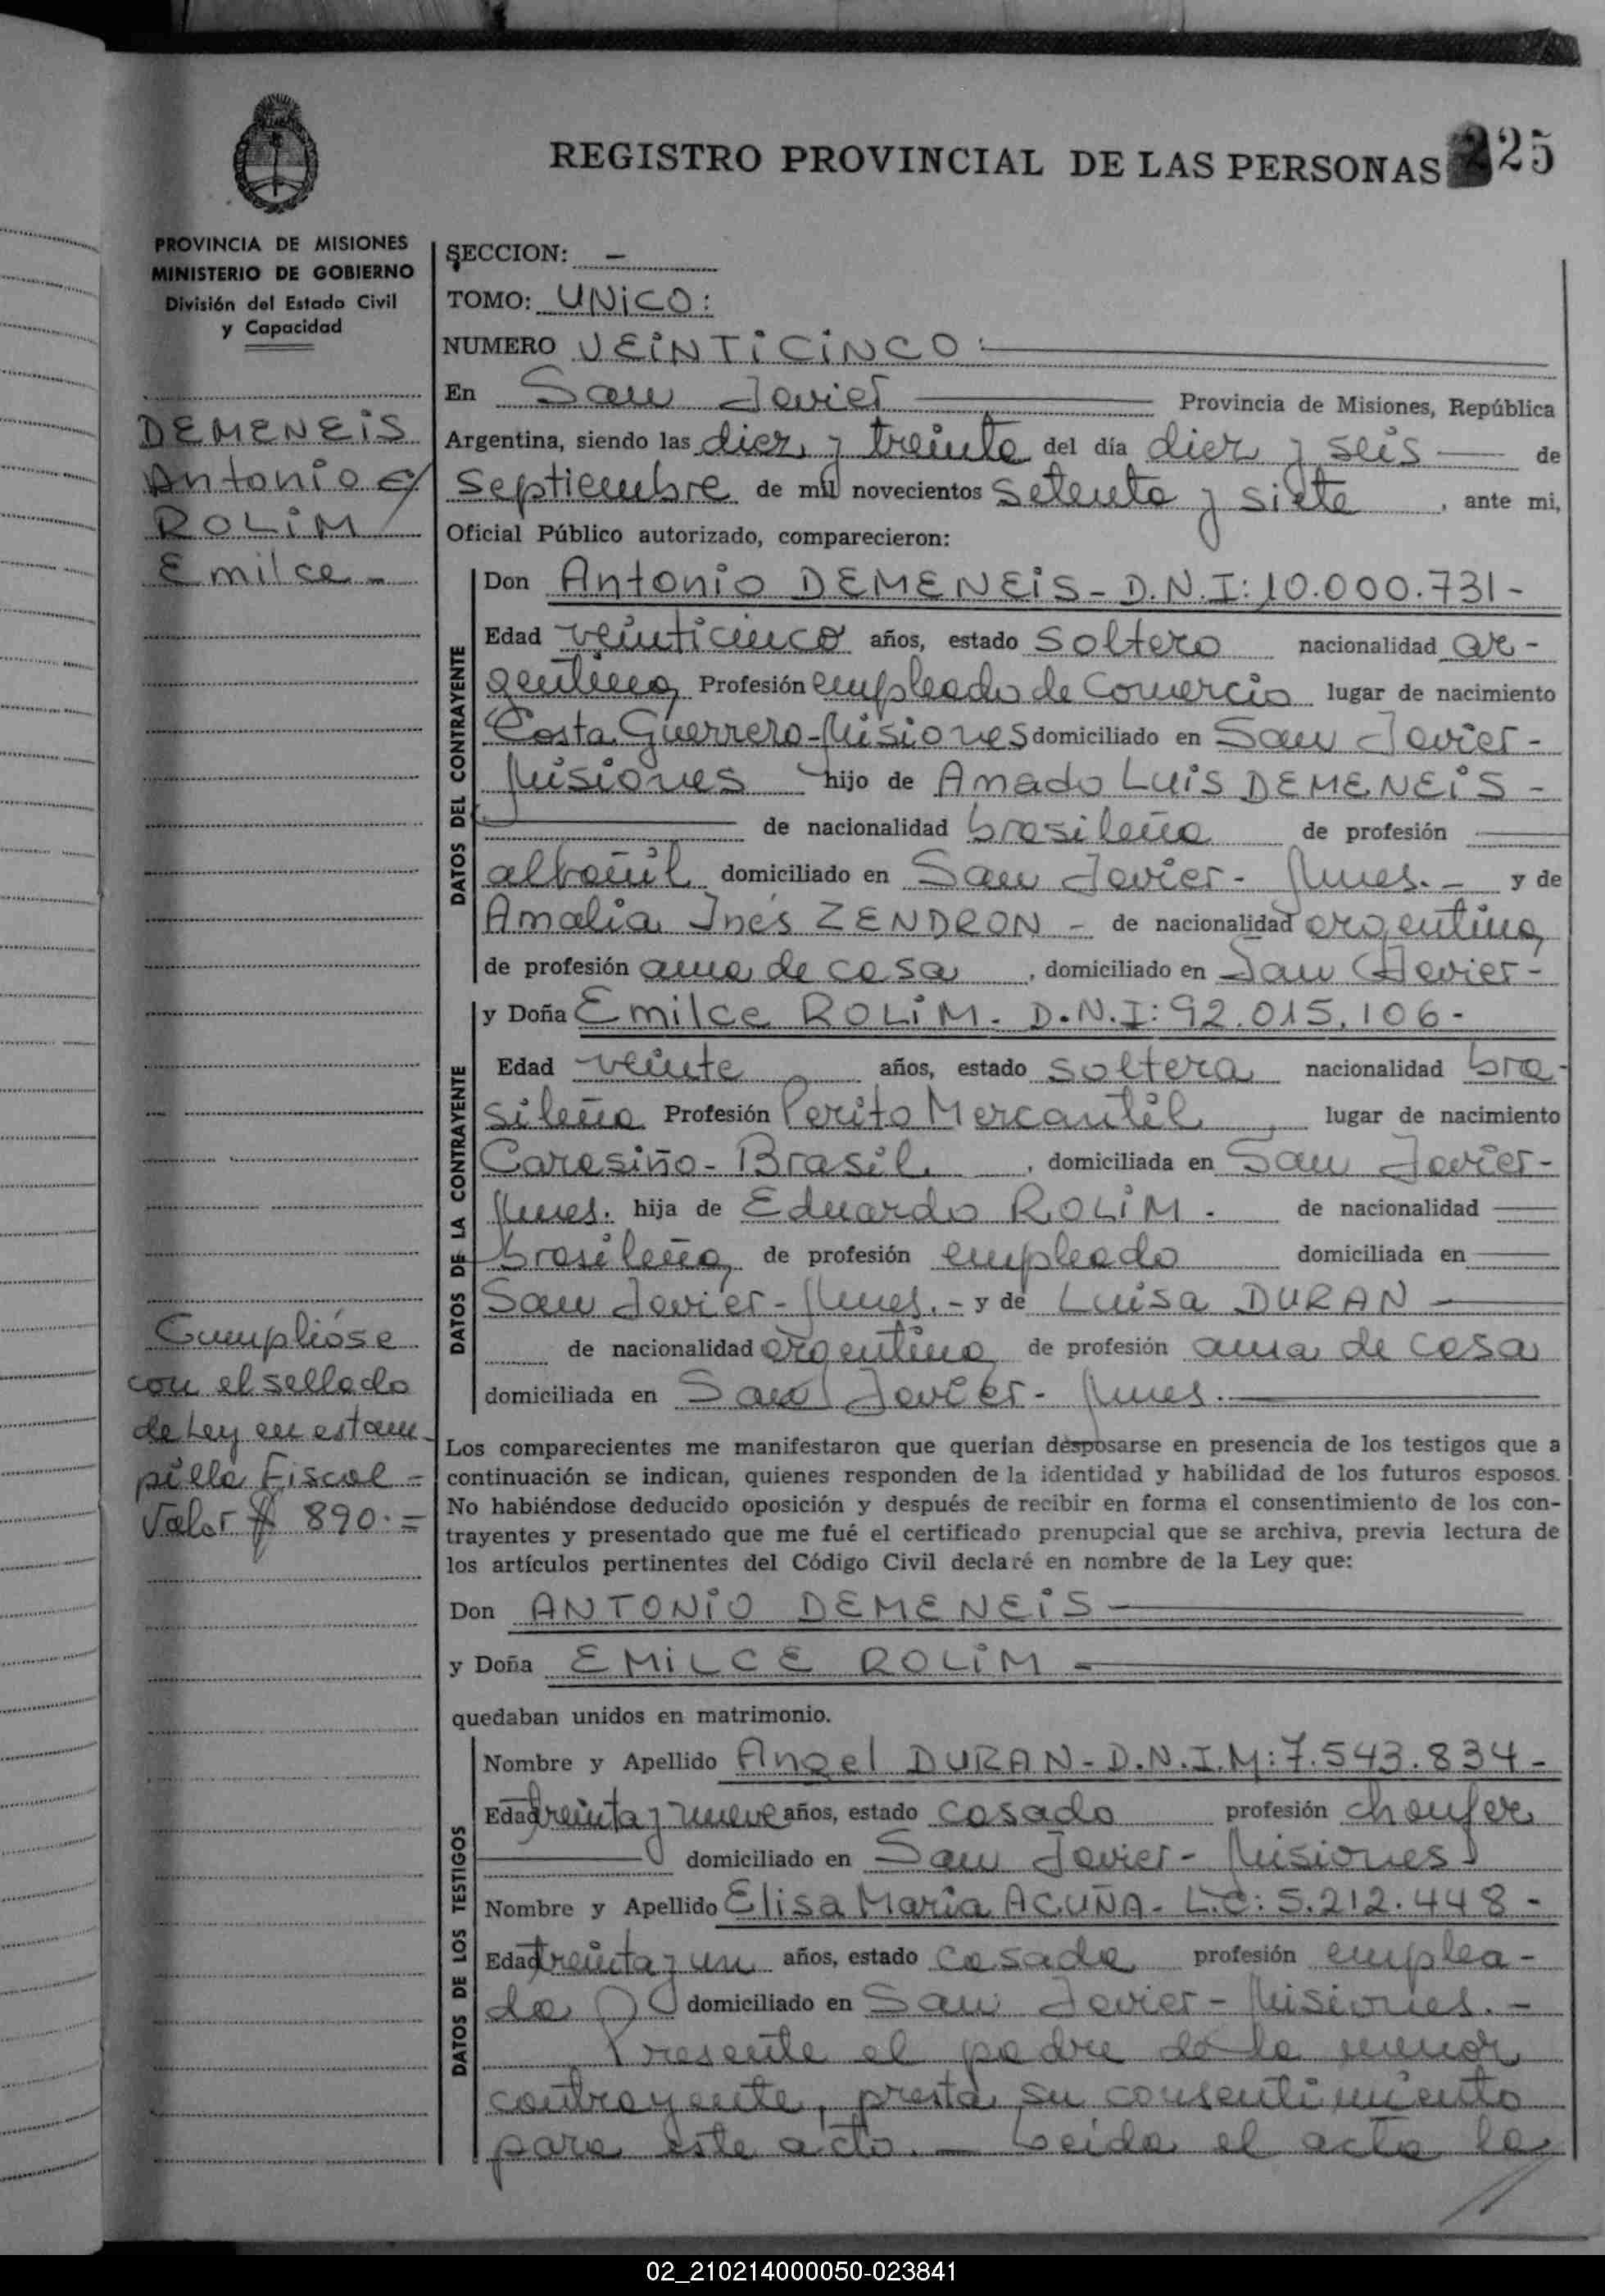 REGISTRO PROVINCIAL DE LAS PERSONAS 225
PROVINCIA DE MISIONES
MINISTERIO DE GOBIERNO
División del Estado Civil
y Capacidad
DEMENEiS
Antonio c/
ROLiM
Emilce -
Cumplióse
con el sellado
de Ley en estam-
pilla Fiscal =
Valor $ 890.=
SECCION: —
TOMO: UNiCO:
NUMERO VEiNTiCiNCO:
En San Javier Provincia de Misiones, República
Argentina, siendo las diez y treinta del día diez y seis — de
septiembre de mil novecientos setenta y siete, ante mi,
Oficial Público autorizado, comparecieron:
DATOS DEL CONTRAYENTE
Don Antonio DEMENEiS - D.N.I: 10.000.731 -
Edad veinticinco años, estado soltero nacionalidad ar-
gentina, Profesión empleado de comercio lugar de nacimiento
Costa Guerrero - Misiones domiciliado en San Javier -
Misiones hijo de Amado Luis DEMENEiS -
de nacionalidad brasileña de profesión
albañil domiciliado en San Javier - Mnes. - y de
Amalia Inés ZENDRON - de nacionalidad argentina,
de profesión ama de casa, domiciliado en San Javier -
DATOS DE LA CONTRAYENTE
y Doña Emilce ROLiM - D.N.I: 92.015.106 -
Edad veinte años, estado soltera nacionalidad bra-
sileña Profesión Perito Mercantil, lugar de nacimiento
Carasiño - Brasil, domiciliada en San Javier -
Mnes. hija de Eduardo ROLiM - de nacionalidad
brasileña, de profesión empleado domiciliada en
San Javier - Mnes. - y de Luisa DURAN
de nacionalidad argentina, de profesión ama de casa
domiciliada en San Javier - Mnes.
Los comparecientes me manifestaron que querían desposarse en presencia de los testigos que a
continuación se indican, quienes responden de la identidad y habilidad de los futuros esposos.
No habiéndose deducido oposición y después de recibir en forma el consentimiento de los con-
trayentes y presentado que me fué el certificado prenupcial que se archiva, previa lectura de
los artículos pertinentes del Código Civil declaré en nombre de la Ley que:
Don ANTONiO DEMENEiS
y Doña EMiLCE ROLiM -
quedaban unidos en matrimonio.
DATOS DE LOS TESTIGOS
Nombre y Apellido Angel DURAN - D.N.I.M: 7.543.834 -
Edad treinta y nueve años, estado casado profesión choufer
domiciliado en San Javier - Misiones
Nombre y Apellido Elisa María ACUÑA - L.C: 5.212.448 -
Edad treinta y un años, estado casada profesión emplea-
da domiciliado en San Javier - Misiones. -
Presente el padre de la menor
contrayente, presta su consentimiento
para este acto. — Leida el acta la
02_210214000050-023841